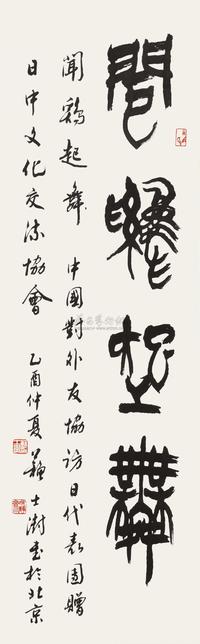 聞雞起舞
聞鷄起舞 中國對外友協訪日代表團贈
日中文化交流協會
乙酉仲夏 蘇士澍書於北京